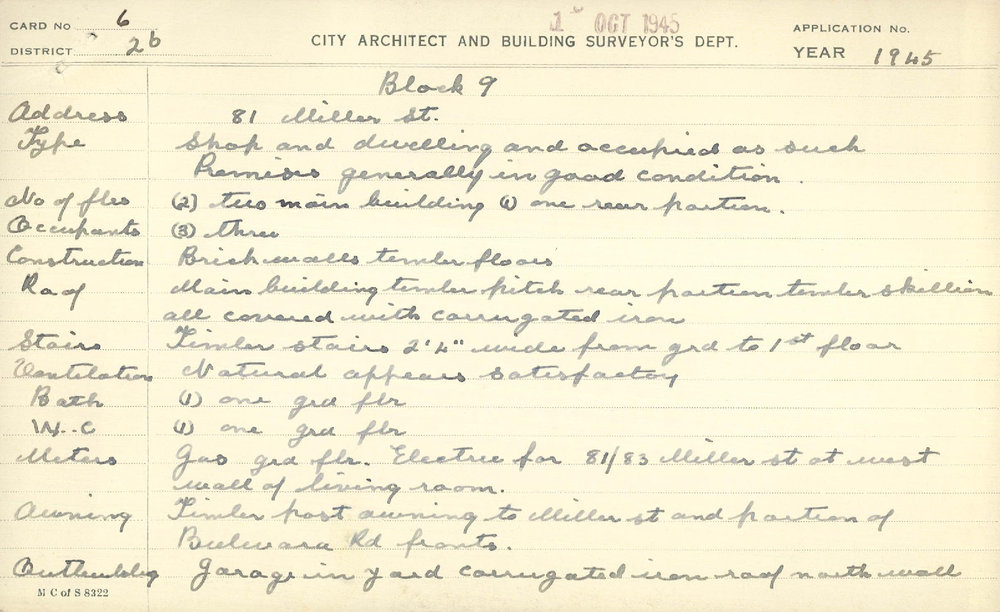 CARD No 6
1 OCT 1945
APPLICATION No.
DISTRICT 2b
CITY ARCHITECT AND BUILDING SURVEYOR'S DEPT.
YEAR 1945
Block 9
Address 81 Miller St.
Type Shop and dwelling and occupied as such
Premises generally in good condition.
No of flrs (2) two main building (1) one rear portion.
Occupants (3) three
Construction Brick walls timber floors
Roof Main building timber pitch rear portion timber skillion
all covered with corrugated iron
Stairs Timber stairs 2'4" wide from grd to 1st floor
Ventilation Natural appears satisfactory
Bath (1) one grd flr
W.C (1) one grd flr
Meters Gas grd flr. Electric for 81/83 Miller st at west
wall of living room.
Awning Timber post awning to Miller st and portion of
Bulwara Rd fronts.
Outbuildg Garage in yard corrugated iron roof north wall
M C of S 8322